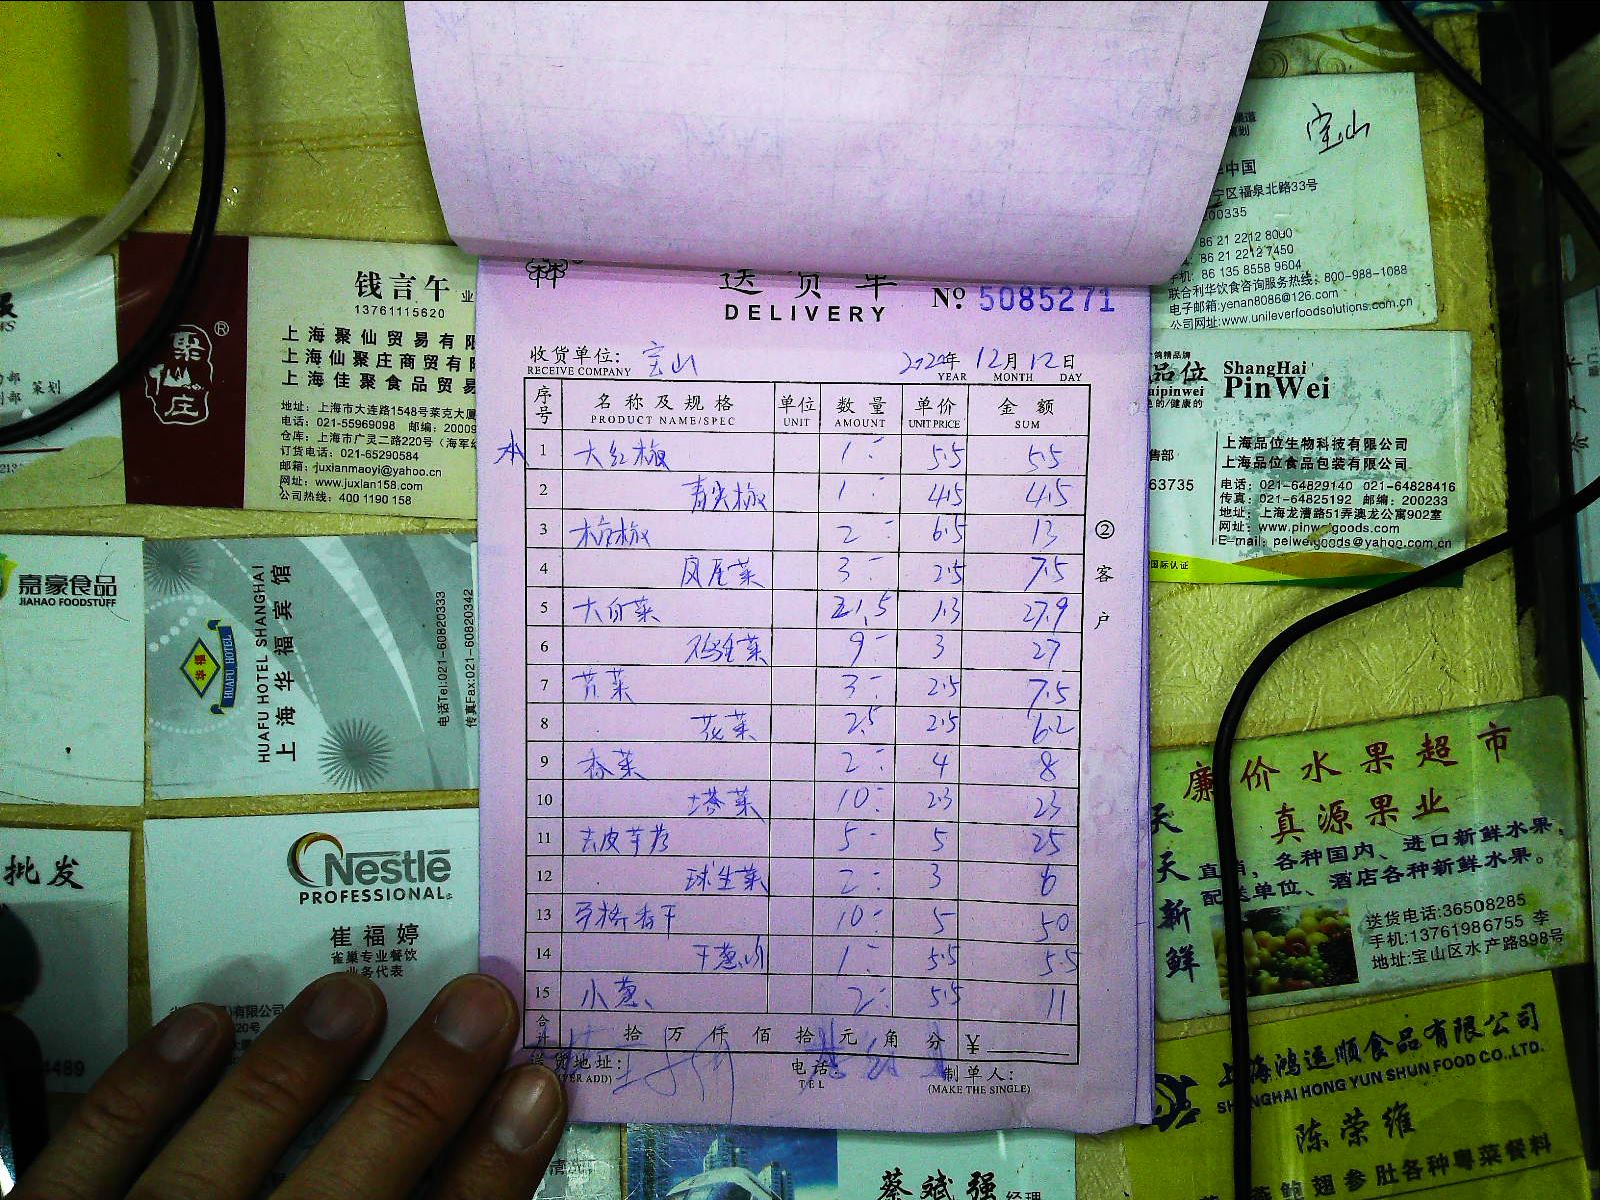 送货单
DELIVERY
No. 5085271
收货单位: 宝山 2022年 12月 12日
RECEIVE COMPANY YEAR MONTH DAY
序号 名称及规格 单位 数量 单价 金额
PRODUCT NAME/SPEC UNIT AMOUNT UNIT PRICE SUM
1 大红椒 1 5.5 5.5
2 青尖椒 1 4.5 4.5
3 杭椒 2 6.5 13
4 凤尾菜 3 2.5 7.5
5 大白菜 21.5 1.3 27.9
6 鸡毛菜 9 3 27
7 芹菜 3 2.5 7.5
8 花菜 2.5 2.5 6.2
9 香菜 2 4 8
10 塔菜 10 2.3 23
11 去皮芋艿 5 5 25
12 球生菜 2 3 6
13 香干 10 5 50
14 干葱 1 5.5 5.5
15 小葱 2 5.5 11
合计 拾 万 仟 佰 拾 元 角 分 ¥
送货地址: 电话: 制单人:
TEL (MAKE THE SINGLE)
② 客户
钱言午 业
13761115620
上海聚仙贸易有限
上海仙聚庄商贸有限
上海佳聚食品贸易
地址: 上海市大连路1548号莱克大厦
电话: 021-55969098 邮编: 20009
仓库: 上海市广灵二路220号 (海军
订货电话: 021-65290584
邮箱: juxianmaoyi@yahoo.cn
网址: www.juxian158.com
公司热线: 400 1190 158
聚仙庄®
策划
嘉豪食品
JIAHAO FOODSTUFF
HUAFU HOTEL
HUAFU HOTEL SHANGHAI
上海华福宾馆
电话Tel:021-60820333
传真Fax:021-60820342
批发
4489
Nestle
PROFESSIONAL
崔福婷
雀巢专业餐饮
业务代表
有限公司
宝山
中国
宁区福泉北路33号
200335
86 21 2212 8000
86 21 2212 7450
手机: 86 135 8558 9604
联合利华饮食咨询服务热线: 800-988-1088
电子邮箱:yenan8086@126.com
公司网址:www.unileverfoodsolutions.com.cn
品位
ShangHai
PinWei
上海品位生物科技有限公司
上海品位食品包装有限公司
售部
63735
电话: 021-64829140 021-64828416
传真: 021-64825192 邮编: 200233
地址: 上海龙漕路51弄澳龙公寓902室
网址: www.pinweigoods.com
E-mail: peiweigoods@yahoo.com.cn
国际认证
廉价水果超市
真源果业
天天新鲜
直销, 各种国内、进口新鲜水果,
配送单位、酒店各种新鲜水果。
送货电话:36508285
手机:13761986755 李
地址:宝山区水产路898号
上海鸿运顺食品有限公司
SHANGHAI HONG YUN SHUN FOOD CO.,LTD.
陈荣维
鲍翅参肚各种粤菜餐料
蔡斌强 经理